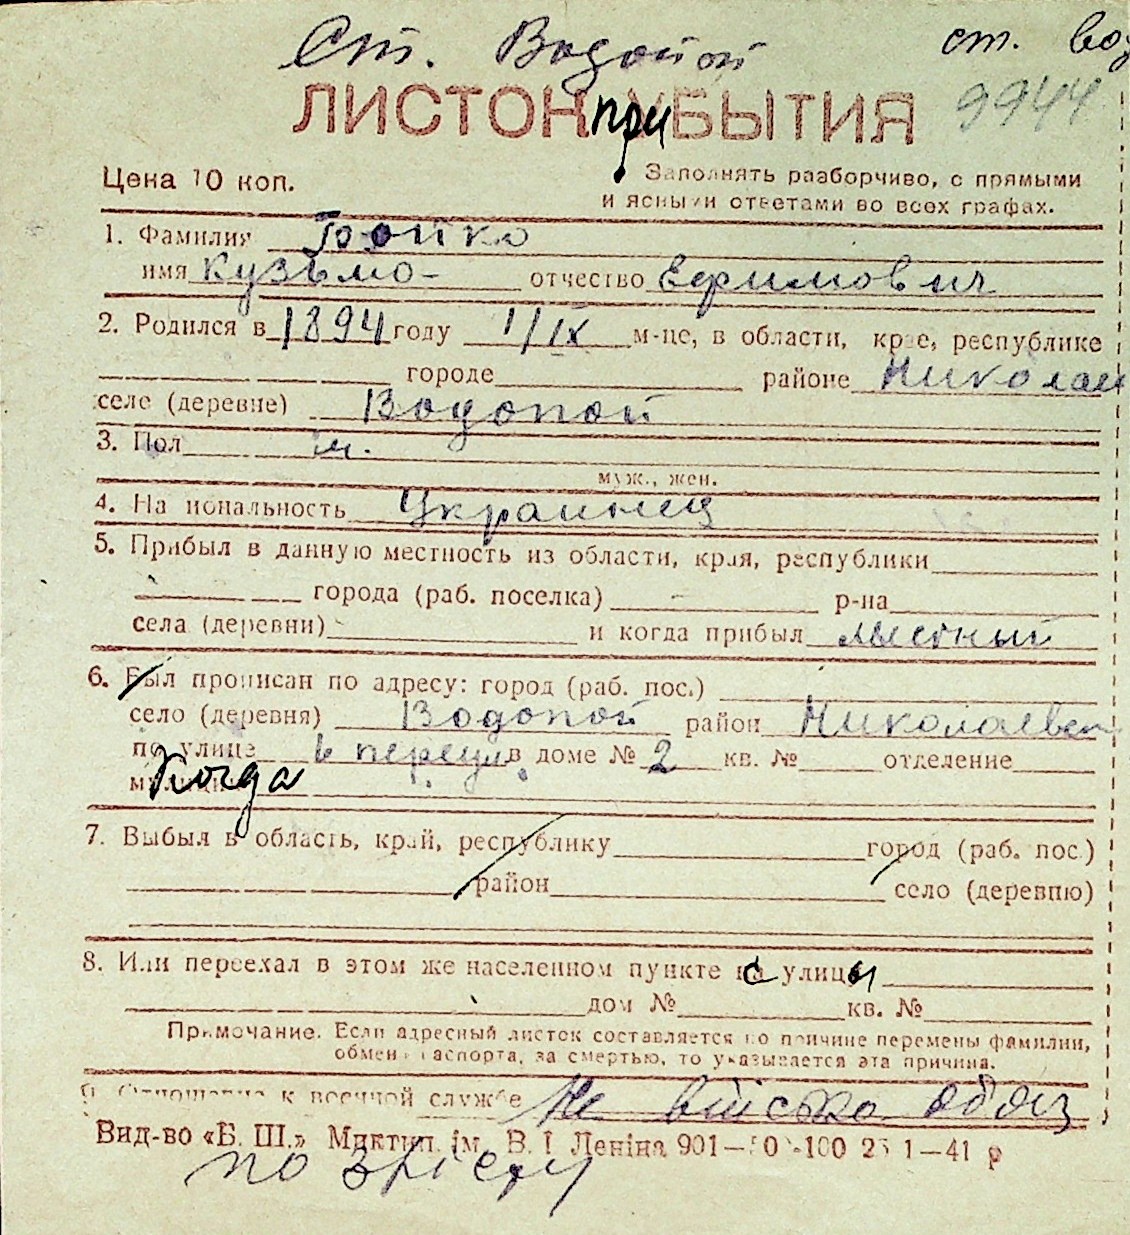 Ст. Водопой
ст. Во
ЛИСТОК при БЫТИЯ
9944
Цена 10 коп.
Заполнять разборчиво, с прямыми
и ясными ответами во всех графах.
1. Фамилия Бойко
имя Кузьмо- отчество Ефимович
2. Родился в 1894 году 1/IX м-це, в области, крае, республике
городе районе Николаев
селе (деревне) Водопой
3. Пол м.
муж., жен.
4. Национальность Украинец
5. Прибыл в данную местность из области, края, республики
города (раб. поселка) р-на
села (деревни) и когда прибыл местный
6. Был прописан по адресу: город (раб. пос.)
село (деревня) Водопой район Николаевск
по улице 6 переул. в доме № 2 кв. № отделение
Когда
7. Выбыл в область, край, республику город (раб. пос.)
район село (деревню)
8. Или переехал в этом же населенном пункте с улицы
дом № кв. №
Примечание. Если адресный листок составляется по причине перемены фамилии,
обмена паспорта, за смертью, то указывается эта причина.
9. Отношение к военной службе Не військо обяз
Вид-во «Б. Ш.» Миктип. ім. В. І Леніна 901— 100 25 1—41 р
по зрісту